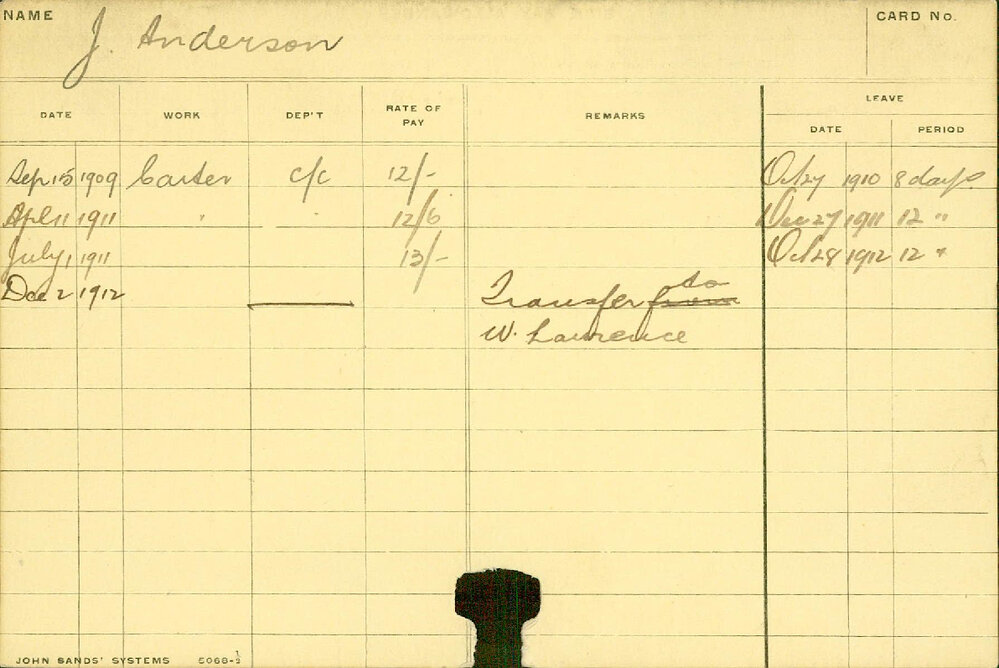 NAME J. Anderson CARD No.
LEAVE
DATE WORK DEP'T RATE OF PAY REMARKS DATE PERIOD
Sep 15 1909 Carter c/c 12/- Oct 27 1910 8 days
April 11 1911 " 12/6 Dec 27 1911 12 "
July 1 1911 13/- Oct 28 1912 12 "
Dec 2 1912 Transfer from to
W. Lawrence
JOHN SANDS' SYSTEMS 5068-½